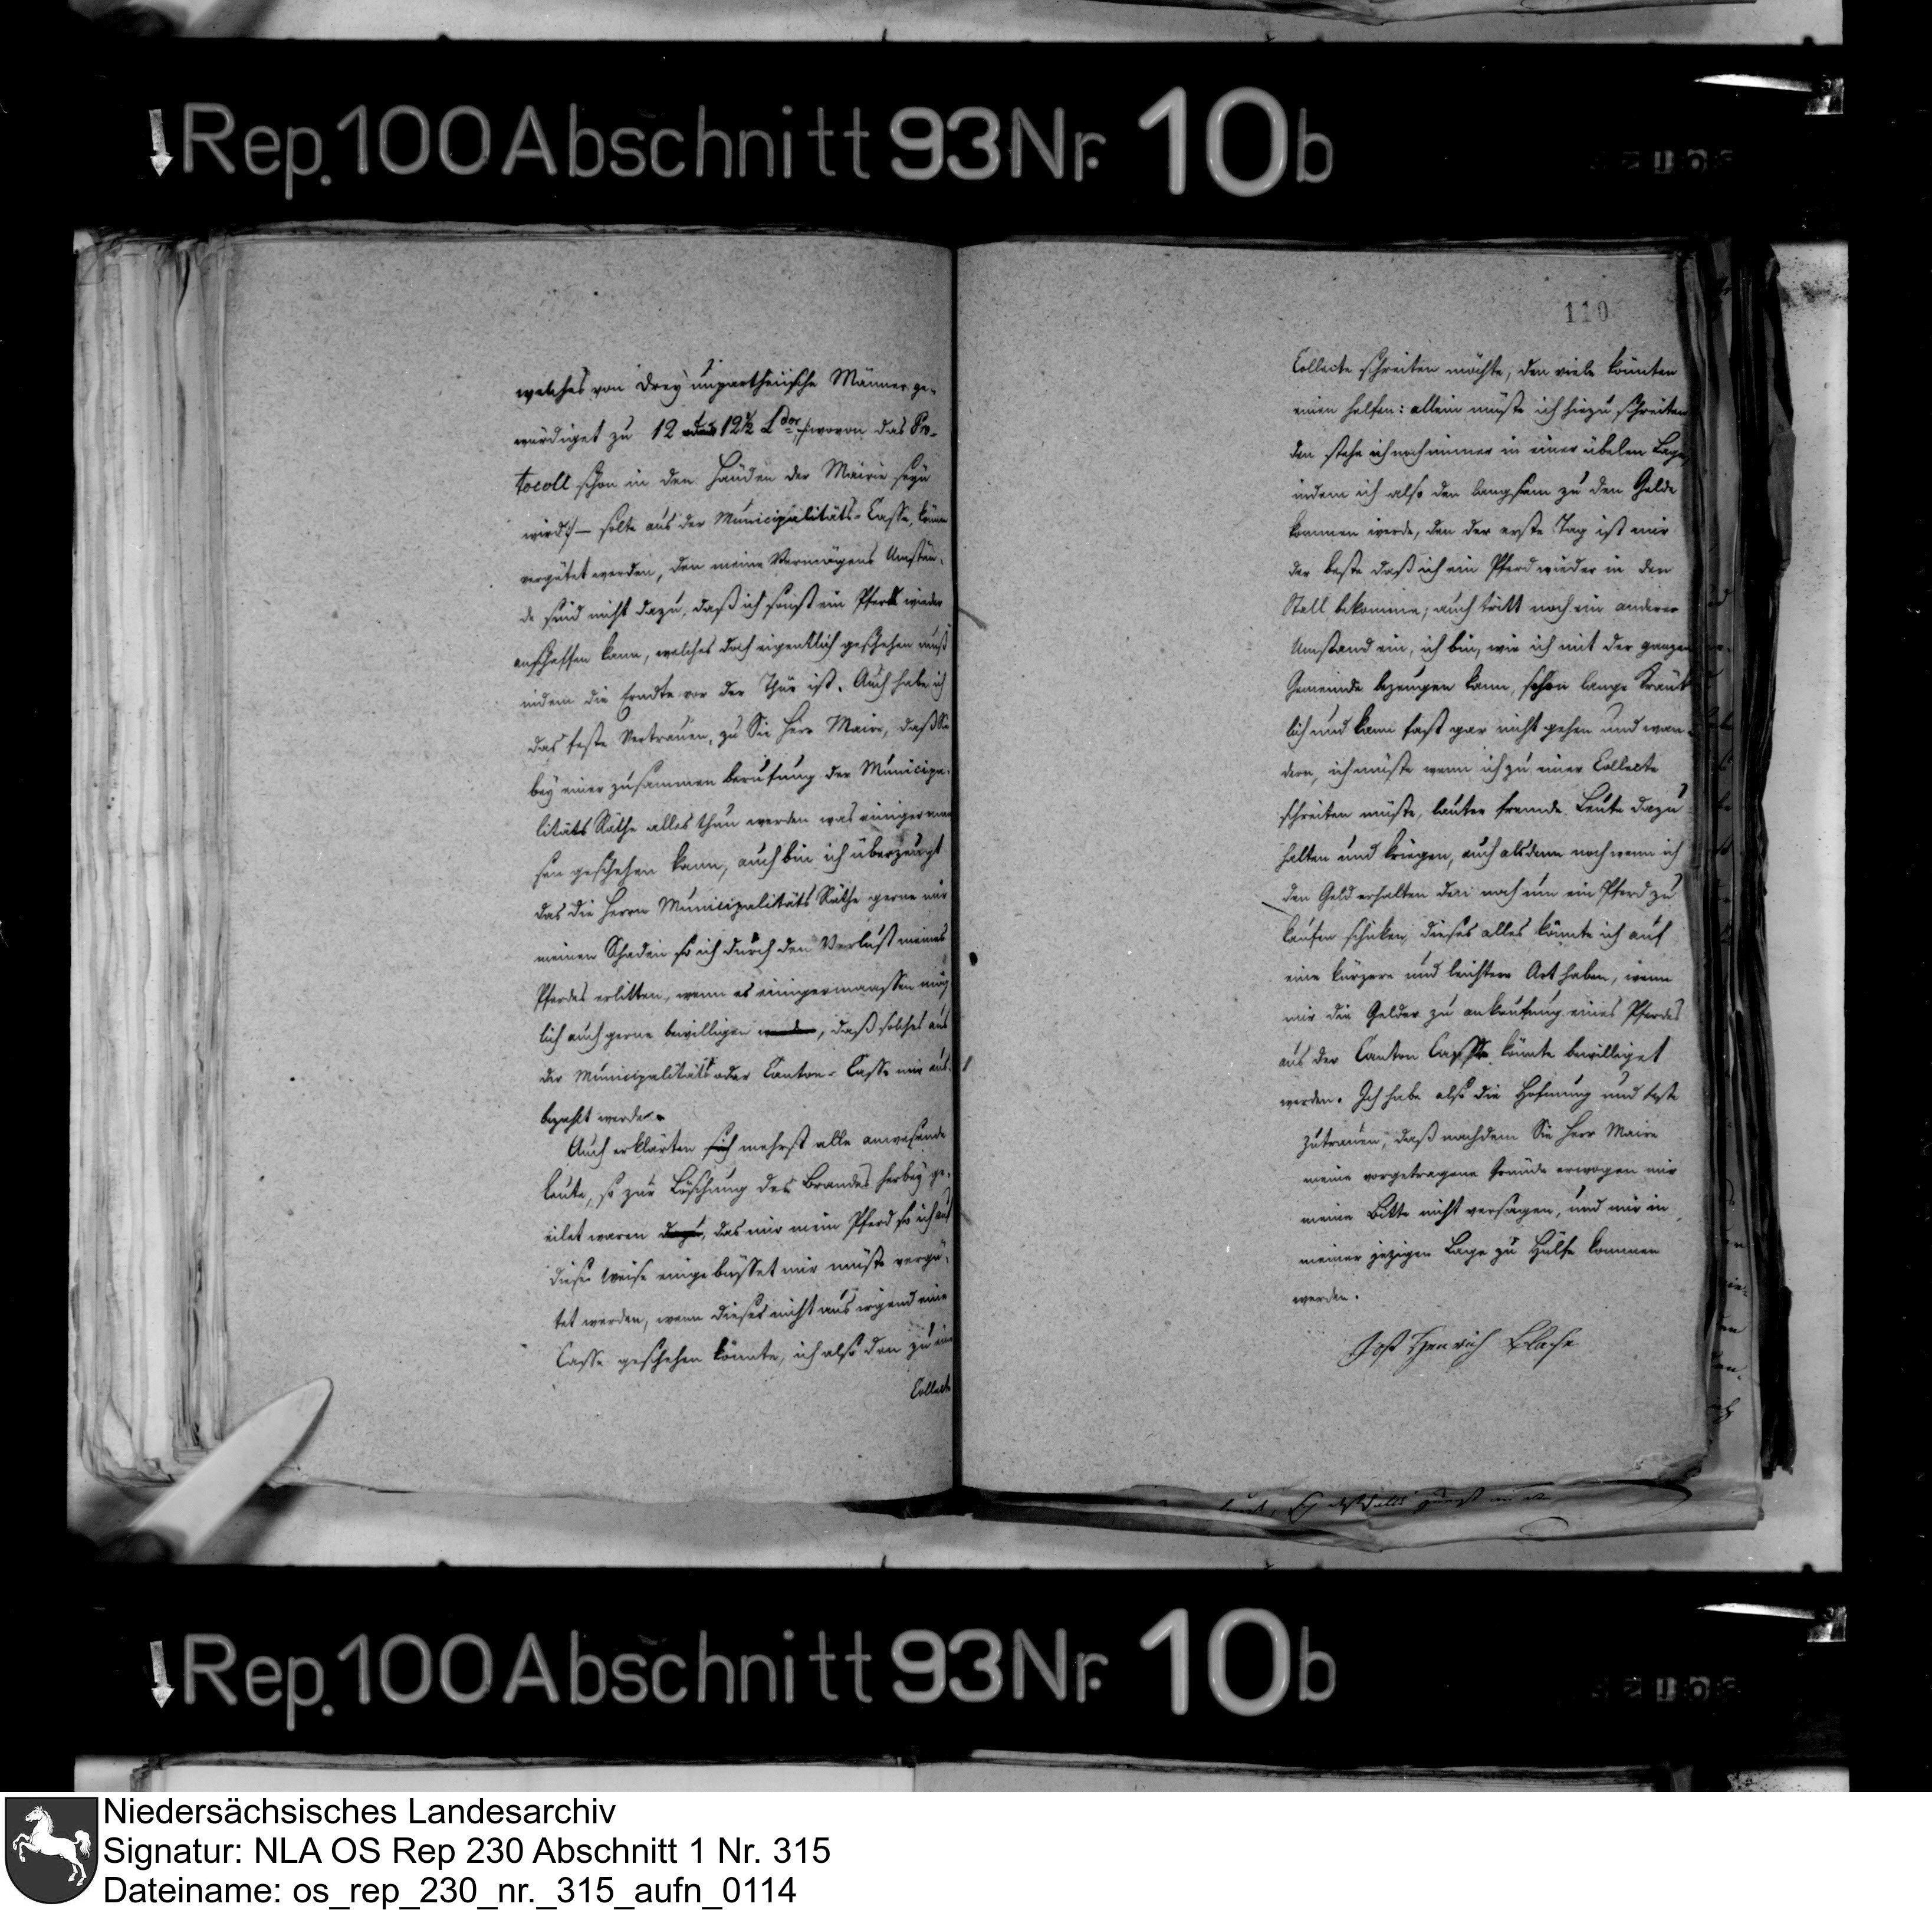 Rep. 100 Abschnitt 93 Nr. 10b
welches von Drey unpartheiische Männer ge-
würdiget zu 12 12½ Ldor, wovon das Pro-
tocoll schon in den Händen der Mairie seyn
wird/:— solte aus der Municipalitäts-Casse, könn
vergütet werden, den meine Vermögens Umstän-
de sind nicht dazu, daß ich sonst ein Pferdt wieder
anschaffen kann, welches doch eigentlich geschehen muß
indem die Erndte vor der Thür ist. Auch habe ich
das feste Vertrauen, zu Sie Herr Maire, daß Sie
bey einer zusammen berufung der Municipa-
litäts Räthe alles thun werden was einigerman
sen geschehen kann, auch bin ich überzeugt
das die Herrn Municipalitäts Räthe gerne mir
meinen Schaden so ich durch den Verlust meines
Pferdes erlitten, wenn es einigermaassen mög
lich auch gerne bewilligen, daß solches aus
der Municipalitäts oder Canton-Casse mir aus-
bezahlt werde.
Auch erklärten sich mehrst alle anwesende
Leute, so zur Löschung des Brandes herbey ge-
eilet waren, das mir mein Pferd so ich auf
diese Weise eingebüsset mir müste vergü-
tet werden, wenn dieses nicht aus irgend eine
Casse geschehen könnte, ich also den zu ein
Collecte
110
Collecte schreiten möchte, den viele könnten
einen helfen: allein müste ich hiezu schreiten
den stehe ich noch immer in einer übelen Lage,
indem ich also den langsam zu den Gelde
kommen werde, den der erste Tag ist mir
der beste daß ich ein Pferd wieder in den
Stall bekomme; auch tritt noch ein anderer
Umstand ein, ich bin, wie ich mit der ganzen
Gemeinde bezeugen kann, schon lange Kränk
lich und kann fast gar nicht gehen und wan-
dern, ich müste wenn ich zu einer Collecte
schreiten müste, lauter fremde Leute dazu
halten und kriegen, auch alsdenn noch wenn ich
den Geld erhalten den noch um ein Pferd zu
kaufen schicken, dieses alles könnte ich auf
eine kürzere und leichtere Art haben, wenn
mir die Gelder zu ankaufung eines Pferdes
aus der Canton Casse könnte bewilliget
werden. Ich habe also die Hofnung und feste
Zutrauen, daß nachdem Sie Herr Maire
meine vorgetragene Gründe erwogen mir
meine Bitte nicht versagen, und mir in
meiner jezigen Lage zu Hülfe kommen
werden.
Jost Henrich
Rep. 100 Abschnitt 93 Nr. 10b
Niedersächsisches Landesarchiv
Signatur: NLA OS Rep 230 Abschnitt 1 Nr. 315
Dateiname: os_rep_230_nr._315_aufn_0114